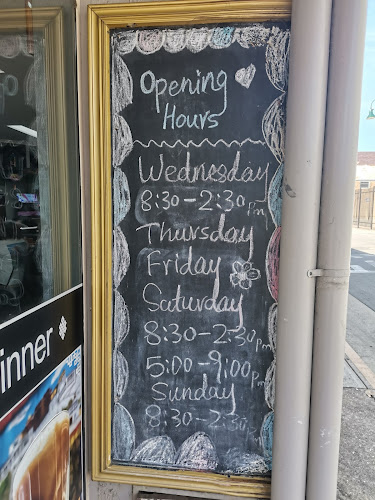 Opening
Hours
Wednesday
8:30-2:30pm
Thursday
Friday
Saturday
8:30-2:30pm
5:00-9:00pm
Sunday
8:30-2:30
inner